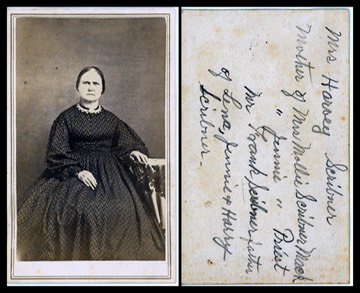 Mrs Harvey Scribner
Mother of Mrs Mollie Scribner Mack
" Jennie " Priest
Mr Frank Scribner father
of Lena, Jennie & Harry
Scribner.